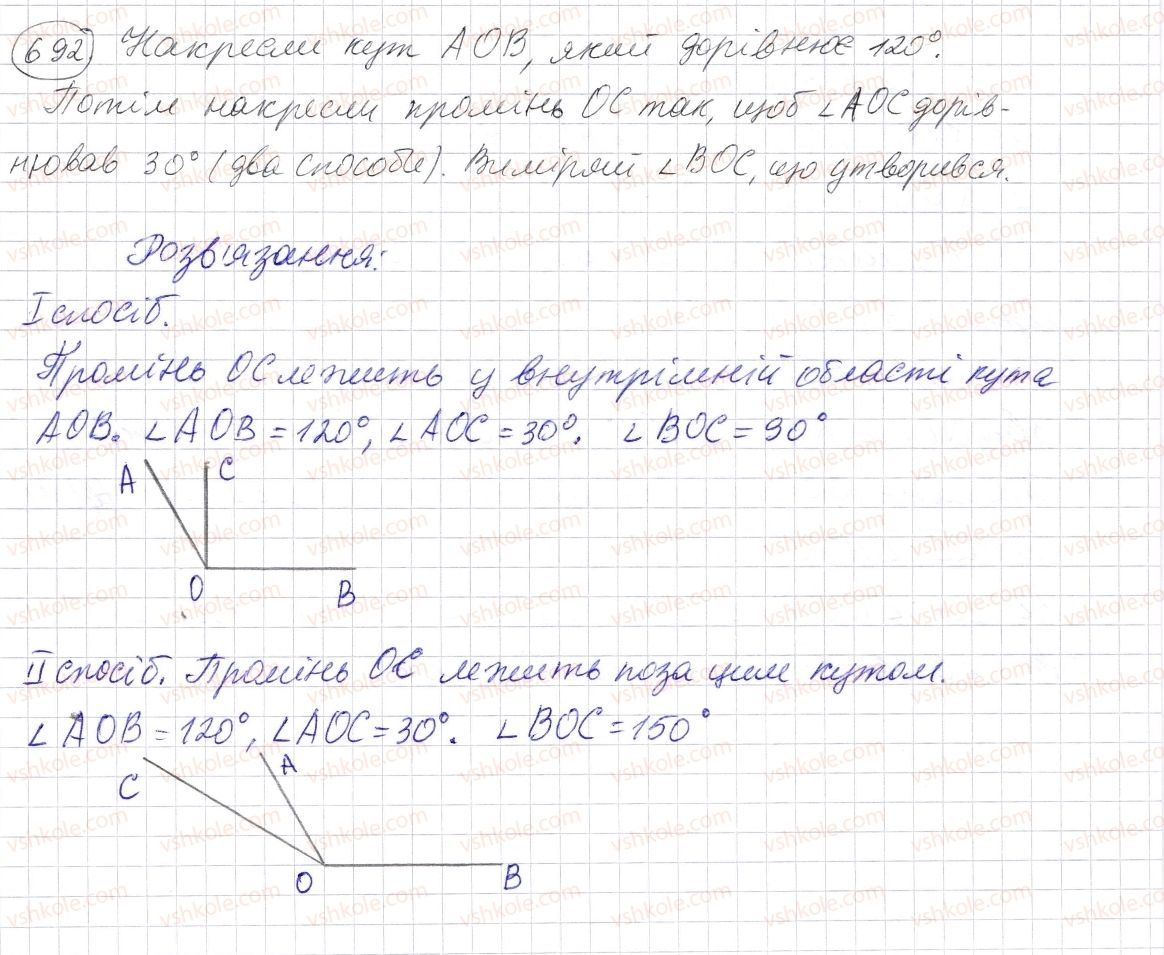 692 Накресли кут AOB, який дорівнює 120°.
Потім накресли промінь OC так, щоб ∠AOC дорів-
нював 30° (два способи). Виміряй ∠BOC, що утворився.
Розв'язання:
I спосіб.
Промінь OC лежить у внутрішній області кута
AOB. ∠AOB = 120°, ∠AOC = 30°. ∠BOC = 90°
A C
O B
II спосіб. Промінь OC лежить поза цим кутом.
∠AOB = 120°, ∠AOC = 30°. ∠BOC = 150°
A
C
O B
vshkole.com